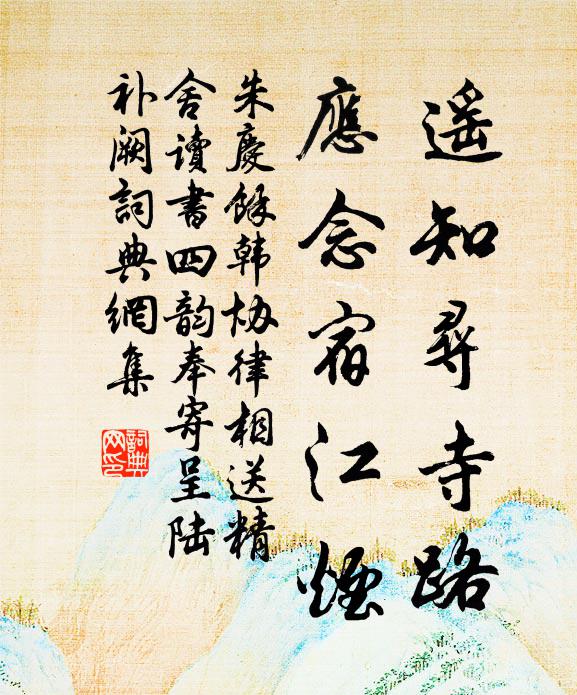 遥知尋寺路
應念宿江煙
朱慶餘韩协律相送精
舍讀書四韵奉寄呈陆
补阙詞典網集
詞典
网印